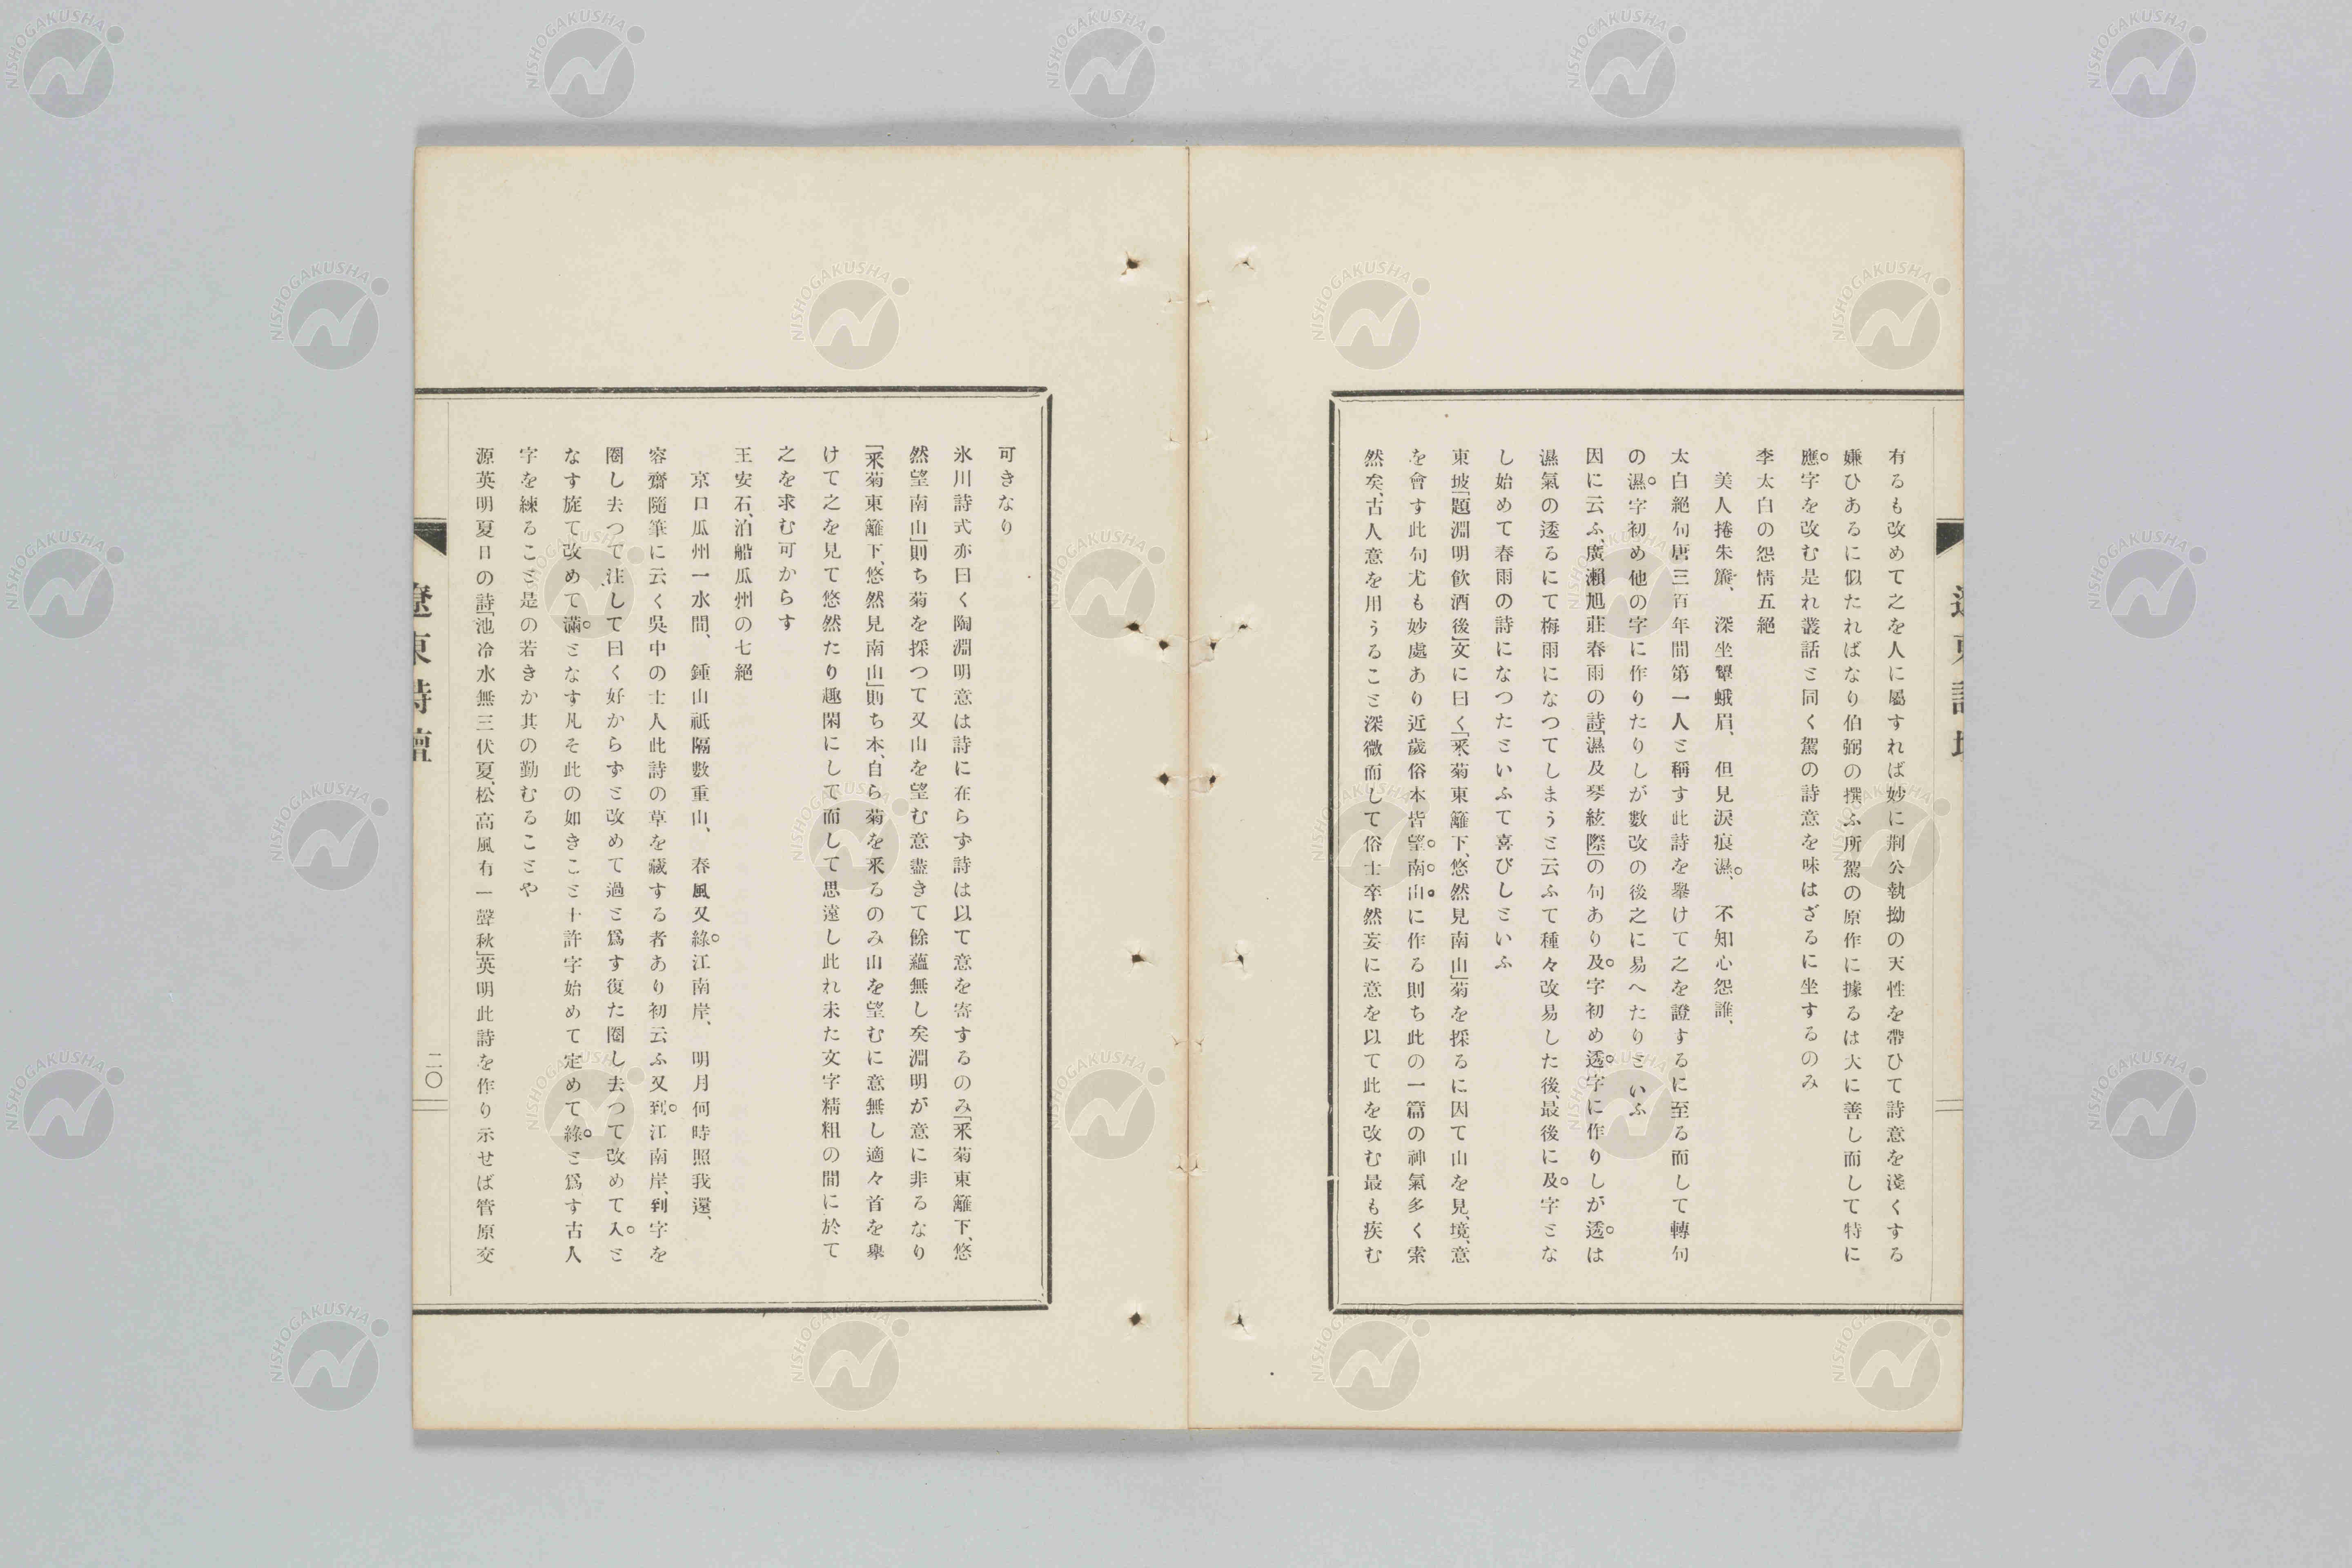 有るも改めて之を人に屬すれば妙に荆公執拗の天性を帶ひて詩意を淺くする
嫌ひあるに似たればなり伯弼の撰ふ所駕の原作に據るは大に善し而して特に
應字を改む是れ叢話と同く駕の詩意を味はざるに坐するのみ
李太白の怨情五絕
美人捲朱簾、深坐顰蛾眉、但見淚痕濕、不知心怨誰、
太白絕句唐三百年間第一人と稱す此詩を擧けて之を證するに至る而して轉句
の濕字初め他の字に作りたりしが數改の後之に易へたりといふ
因に云ふ、廣瀨旭莊春雨の詩「濕及琴絃際」の句あり及字初め透字に作りしが透は
濕氣の透るにて梅雨になつてしまうと云ふて種々改易した後、最後に及字とな
し始めて春雨の詩になつたといふて喜びしといふ
東坡「題淵明飮酒後」文に曰く「釆菊東籬下、悠然見南山」菊を採るに因て山を見、境、意
を會す此句尤も妙處あり近歲俗本皆望南山に作る則ち此の一篇の神氣多く索
然矣、古人意を用うること深微而して俗士卒然妄に意を以て此を改む最も疾む
遼東詩壇
可きなり
氷川詩式亦曰く陶淵明意は詩に在らず詩は以て意を寄するのみ「釆菊東籬下、悠
然望南山」則ち菊を採つて又山を望む意盡きて餘蘊無し矣淵明が意に非るなり
「釆菊東籬下、悠然見南山」則ち本、自ら菊を釆るのみ山を望むに意無し適々首を擧
けて之を見て悠然たり趣閑にして而して思遠し此れ未た文字精粗の間に於て
之を求む可からす
王安石、泊船瓜州の七絕
京口瓜州一水間、鍾山祇隔數重山、春風又綠江南岸、明月何時照我還、
容齋隨筆に云く吳中の士人此詩の草を藏する者あり初云ふ又到江南岸、到字を
圈し去つて、注して曰く好からずと改めて過と爲す復た圈し去つて改めて入と
なす旋て改めて滿となす凡そ此の如きこと十許字始めて定めて綠と爲す古人
字を練ること是の若きか其の勤むることや
源英明夏日の詩「池冷水無三伏夏、松高風有一聲秋」英明此詩を作り示せば管原交
遼東詩壇
二〇